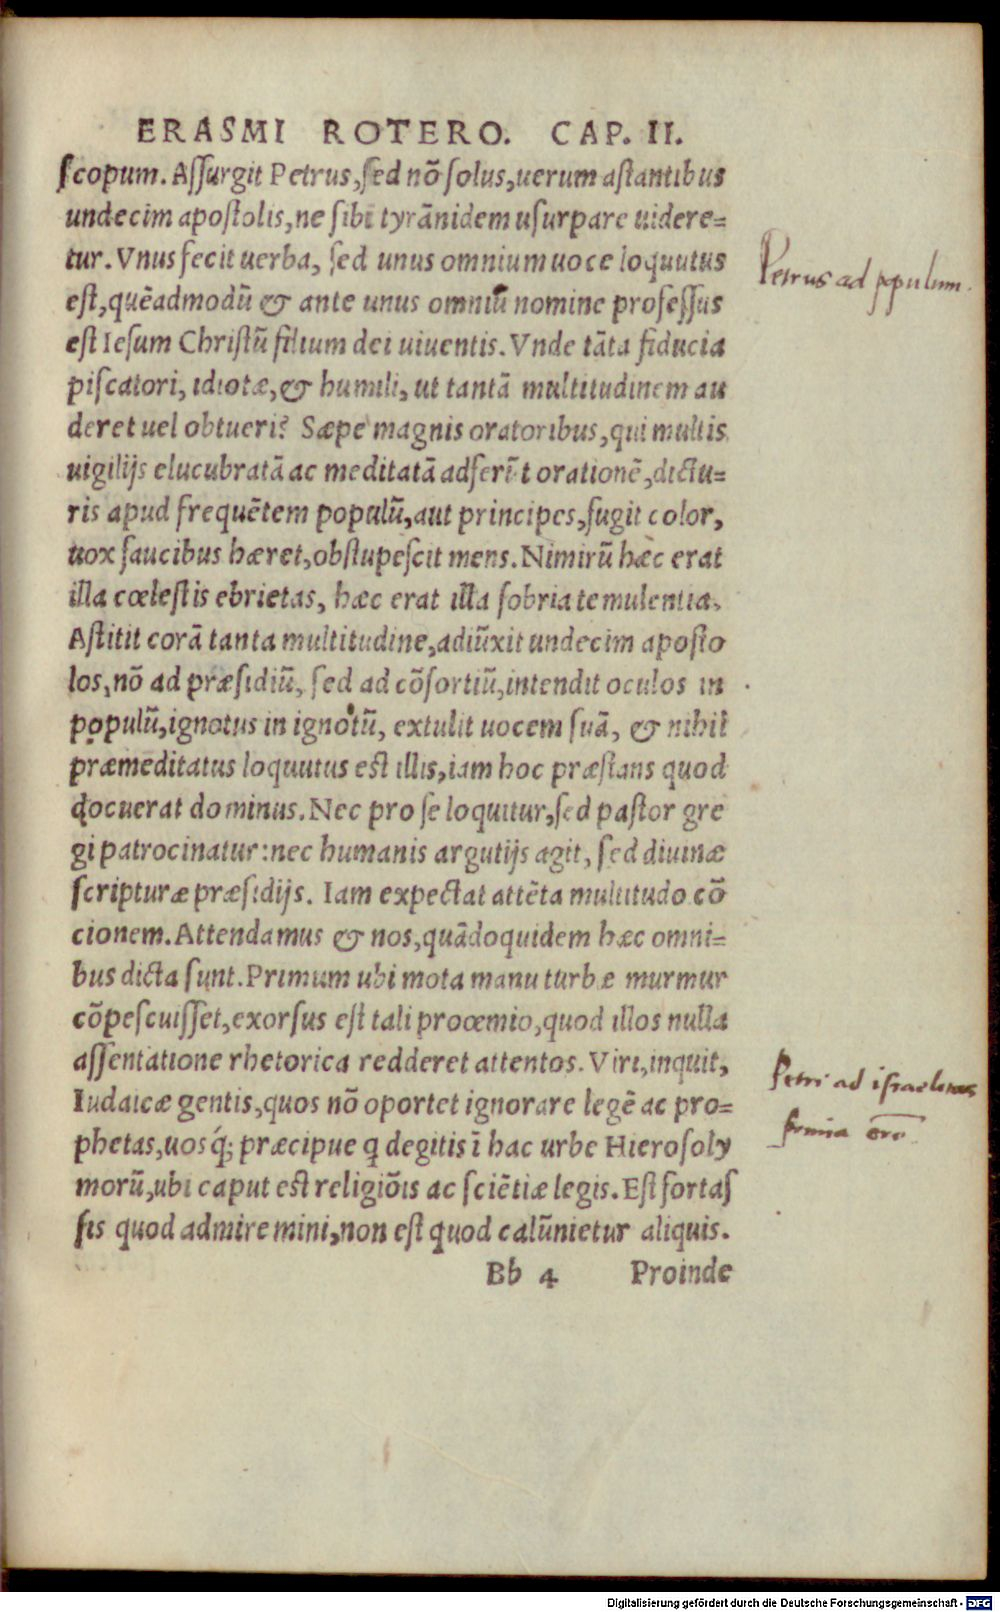 ERASMI ROTERO. CAP. II.
scopum. Assurgit Petrus, sed nõ solus, uerum astantibus
undecim apostolis, ne sibi tyrãnidem usurpare uidere=
tur. Vnus fecit uerba, sed unus omnium uoce loquutus
est, quẽadmodũ & ante unus omniũ nomine professus
est Iesum Christũ filium dei uiuentis. Vnde tãta fiducia
piscatori, idiotæ, & humili, ut tantã multitudinem au
deret uel obtueri? Sæpe magnis oratoribus, qui multis
uigilijs elucubratã ac meditatã adferũt orationẽ, dictu=
ris apud frequẽtem populũ, aut principes, fugit color,
uox faucibus hæret, obstupescit mens. Nimirũ hæc erat
illa cœlestis ebrietas, hæc erat illa sobria temulentia.
Astitit corã tanta multitudine, adiũxit undecim aposto
los, nõ ad præsidiũ, sed ad cõsortiũ, intendit oculos in
populũ, ignotus in ignotũ, extulit uocem suã, & nihil
præmeditatus loquutus est illis, iam hoc præstans quod
docuerat dominus. Nec pro se loquitur, sed pastor gre
gi patrocinatur: nec humanis argutijs agit, sed diuinæ
scripturæ præsidijs. Iam expectat attẽta multitudo cõ
cionem. Attendamus & nos, quãdoquidem hæc omni=
bus dicta sunt. Primum ubi mota manu turbæ murmur
cõpescuisset, exorsus est tali proœmio, quod illos nulla
assentatione rhetorica redderet attentos. Viri, inquit,
Iudaicæ gentis, quos nõ oportet ignorare legẽ ac pro=
phetas, uosq́; præcipue q degitis ĩ hac urbe Hierosoly
morũ, ubi caput est religiõis ac sciẽtiæ legis. Est fortas
sis quod admiremini, non est quod calũnietur aliquis.
Bb 4 Proinde
Petrus ad populum.
Petri ad israelitas
Digitalisierung gefördert durch die Deutsche Forschungsgemeinschaft - DFG